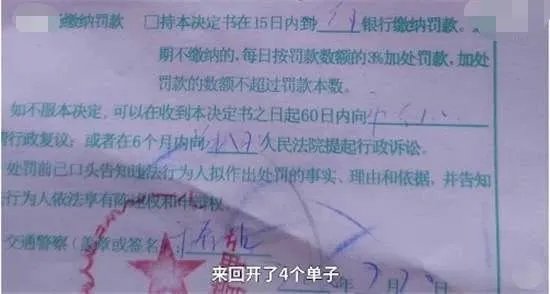 缴纳罚款 □持本决定书在15日内到 银行缴纳罚款。
期不缴纳的,每日按罚款数额的3%加处罚款,加处
罚款的数额不超过罚款本数。
如不服本决定,可以在收到本决定书之日起60日内向
行政复议;或者在6个月内向 人民法院提起行政诉讼。
处罚前已口头告知违法行为人拟作出处罚的事实、理由和依据,并告知
行为人依法享有陈述权和申辩权
交通警察(盖章或签名)
来回开了4个单子